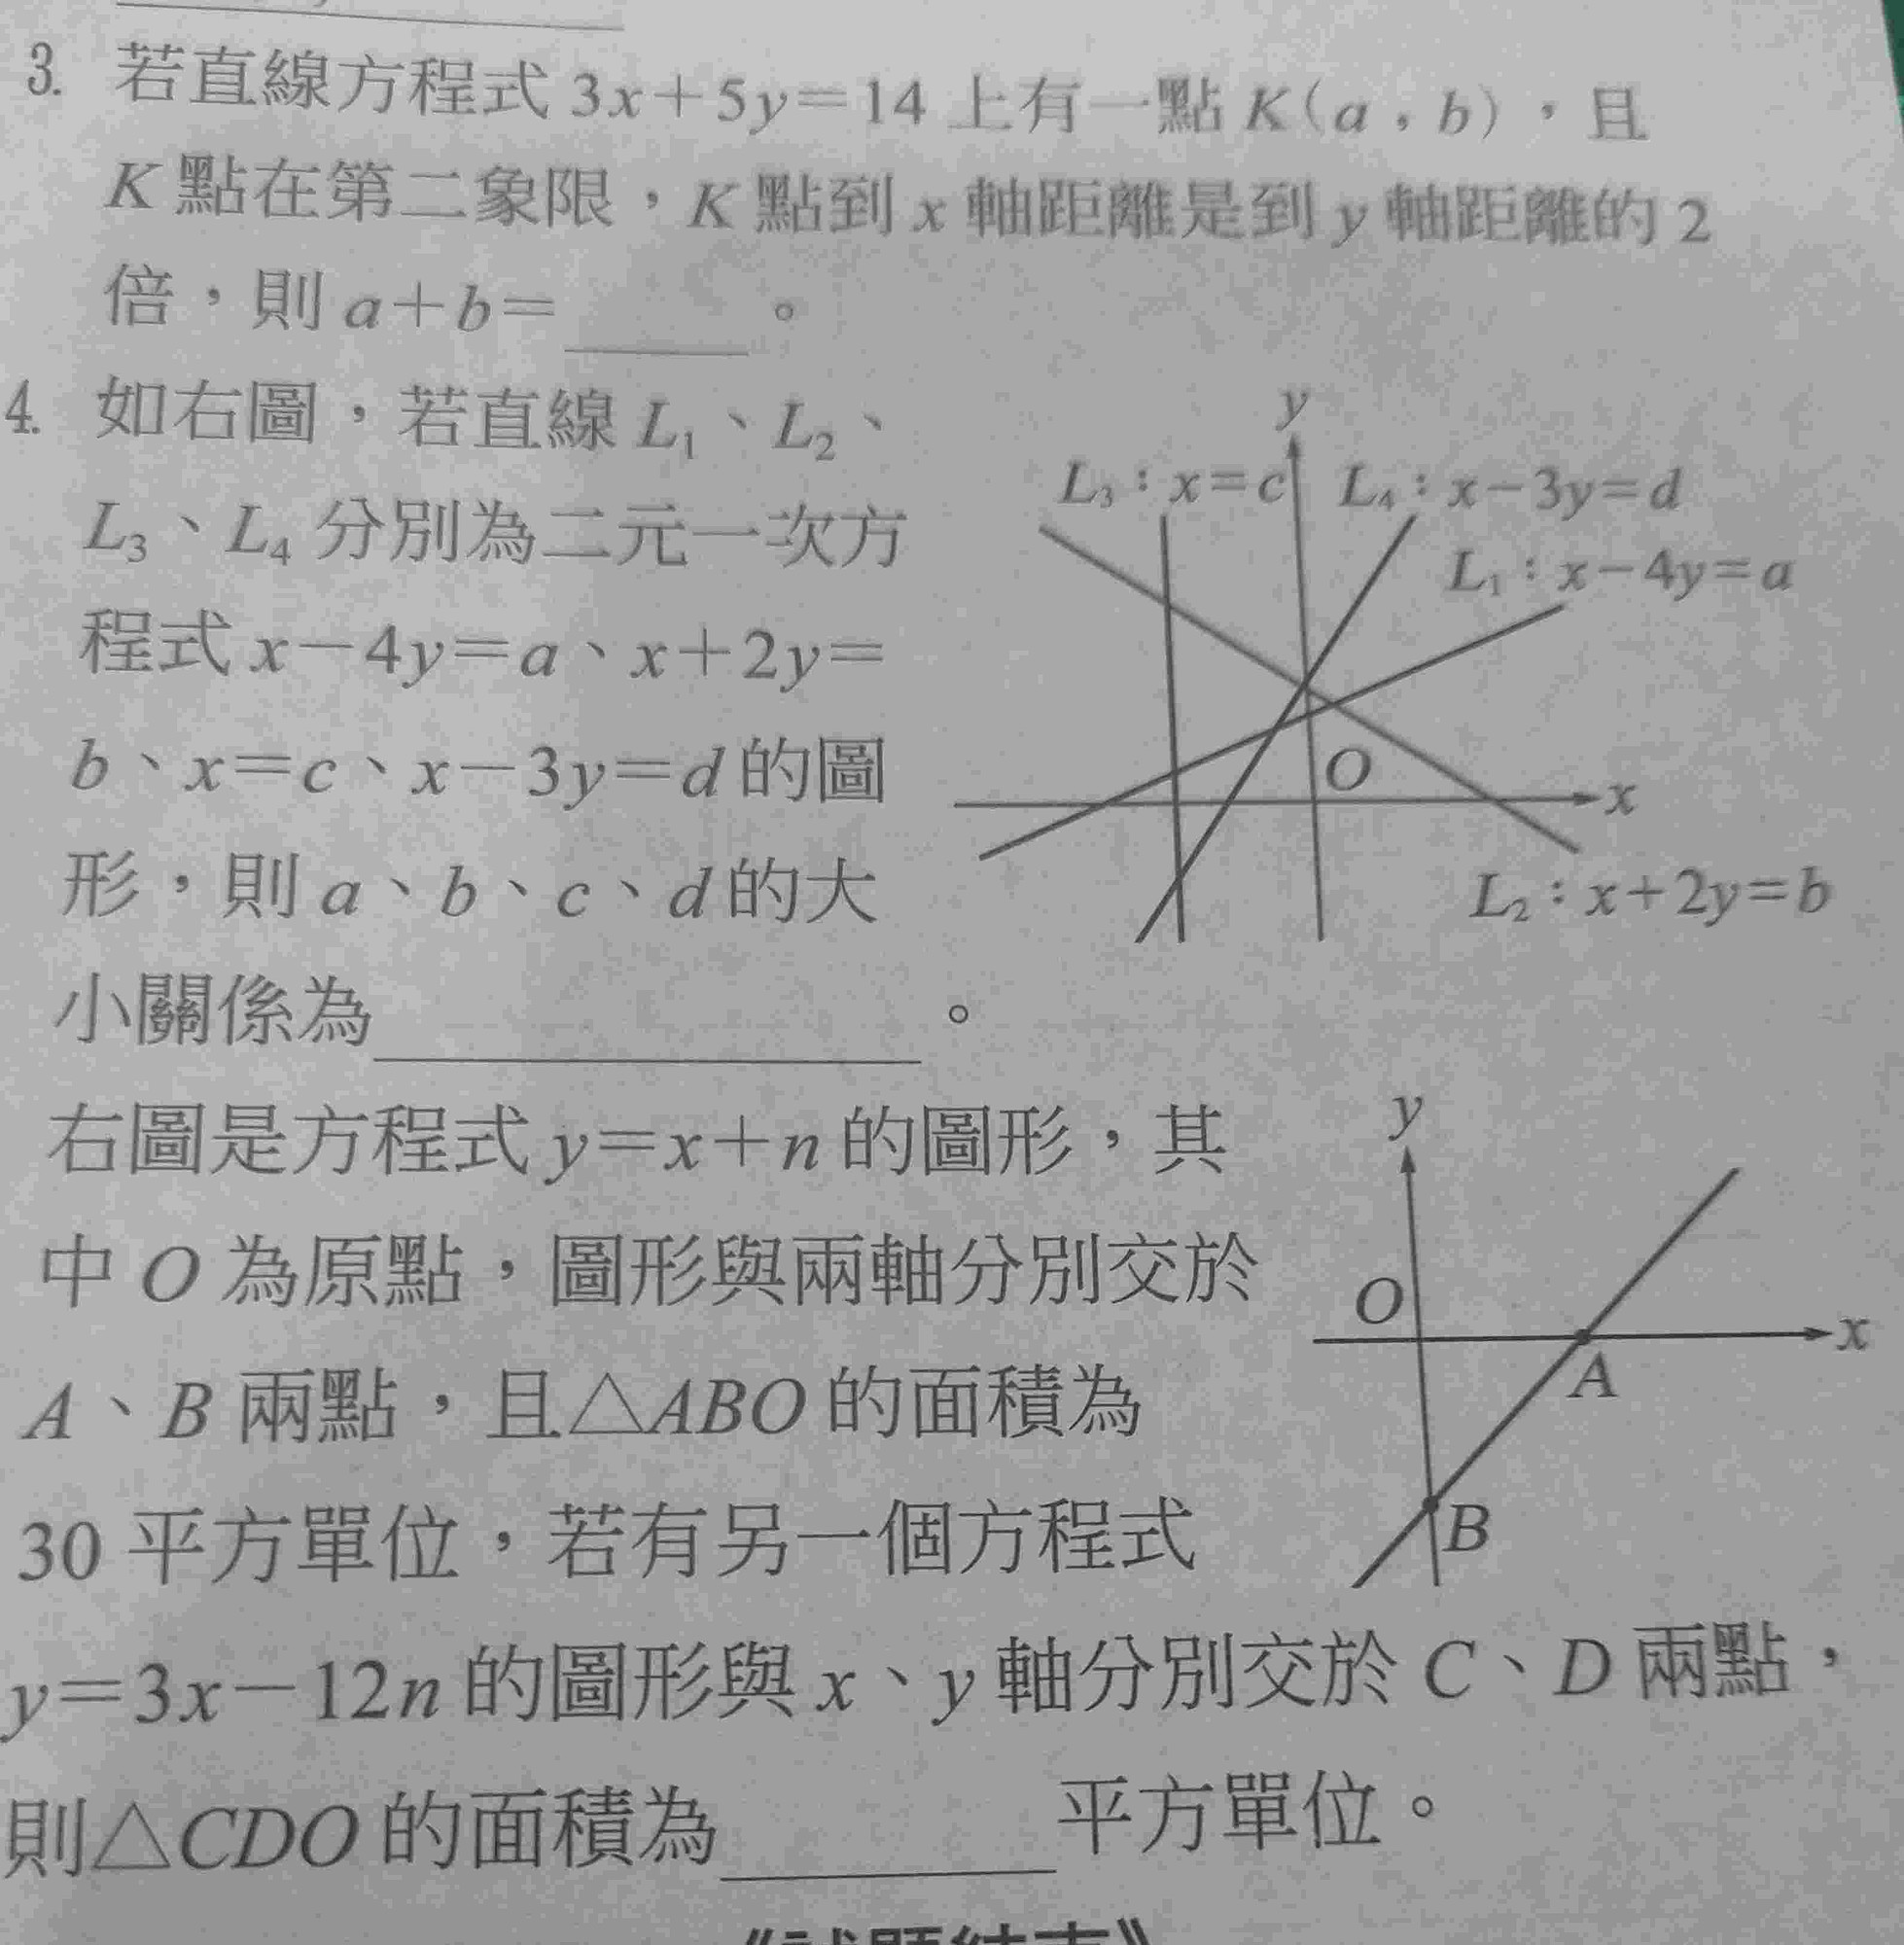 3. 若直線方程式 3x+5y=14 上有一點 K(a,b),且
K 點在第二象限,K 點到 x 軸距離是到 y 軸距離的 2
倍,則 a+b=______。
4. 如右圖,若直線 L₁、L₂、
L₃、L₄ 分別為二元一次方
程式 x-4y=a、x+2y=
b、x=c、x-3y=d 的圖
形,則 a、b、c、d 的大
小關係為______。
y
L₃:x=c
L₄:x-3y=d
L₁:x-4y=a
O
x
L₂:x+2y=b
右圖是方程式 y=x+n 的圖形,其
中 O 為原點,圖形與兩軸分別交於
A、B 兩點,且△ABO 的面積為
30 平方單位,若有另一個方程式
y=3x-12n 的圖形與 x、y 軸分別交於 C、D 兩點,
則△CDO 的面積為______平方單位。
y
O
x
A
B